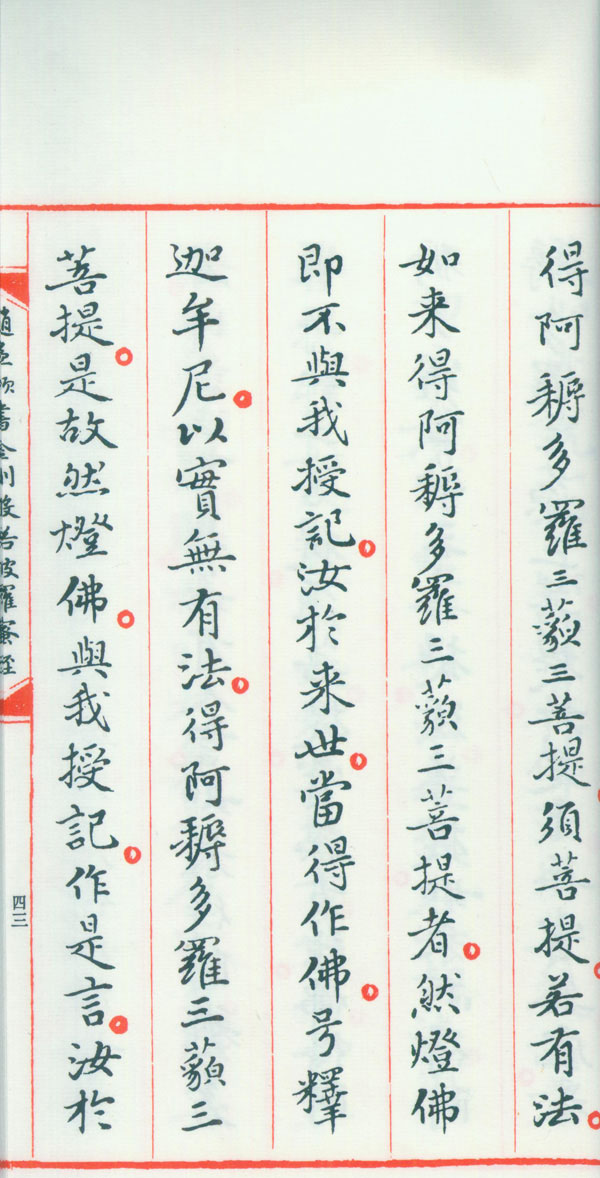 得阿耨多羅三藐三菩提須菩提若有法
如来得阿耨多羅三藐三菩提者然燈佛
即不與我授記汝於来世當得作佛号釋
迦牟尼以實無有法得阿耨多羅三藐三
菩提是故然燈佛與我授記作是言汝於
趙孟頫書金剛般若波羅蜜經
四三